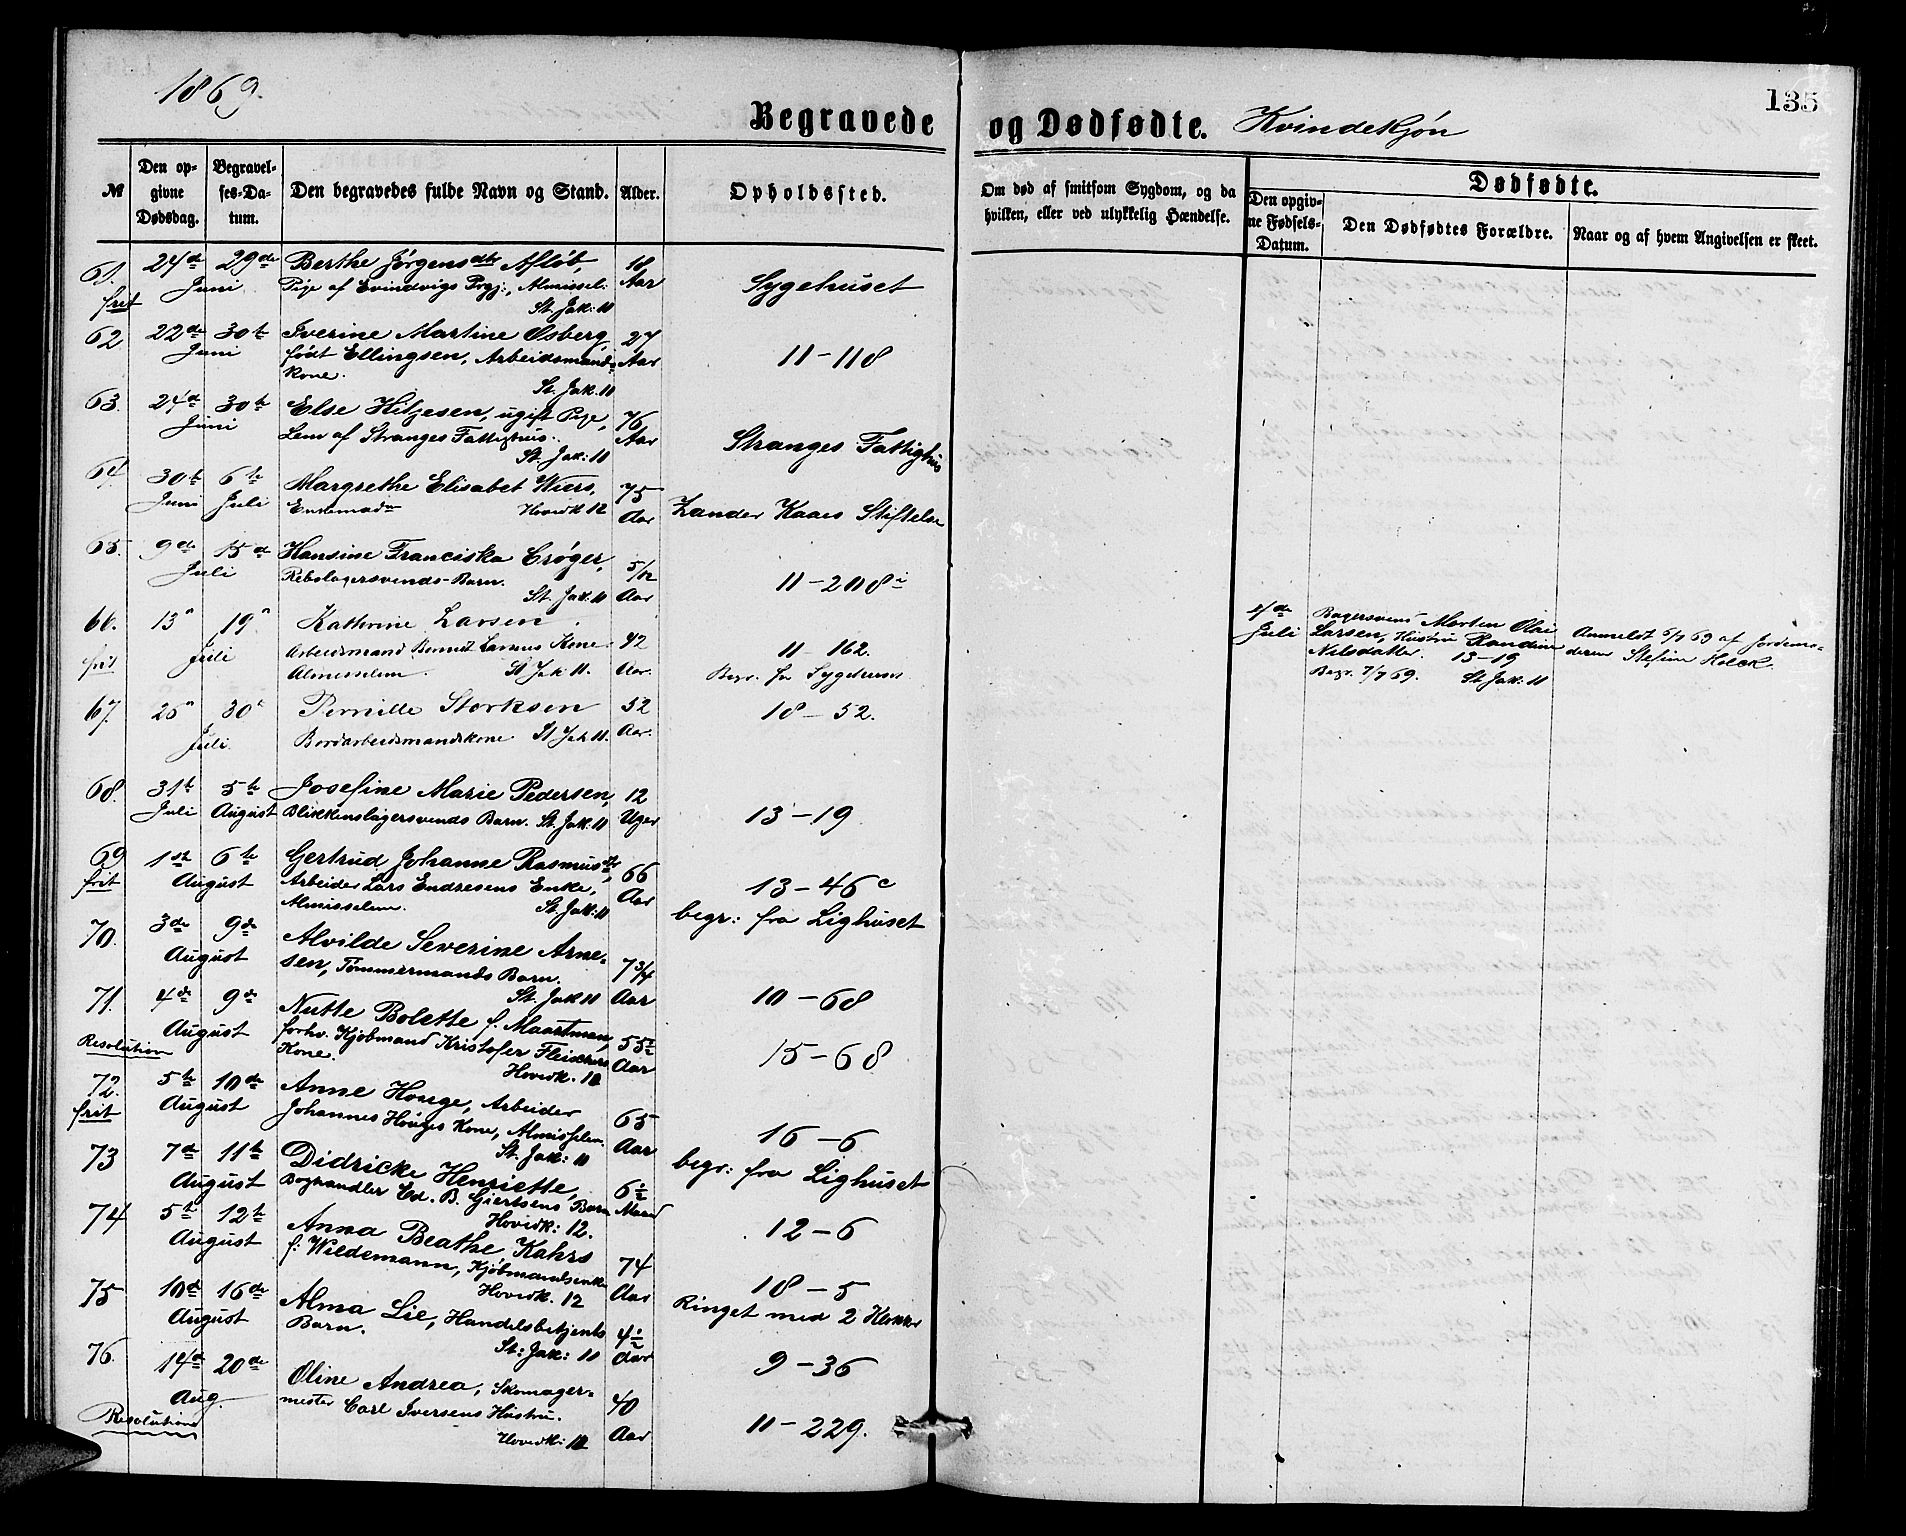 1869.
135
Begravede og Dødfødte. Kvindekjøn
№
Den opgivne Dødsdag.
Begravelses-Datum.
Den begravedes fulde Navn og Stand.
Alder.
Opholdssted.
Om død af smitsom Sygdom, og da hvilken, eller ved ulykkelig Hændelse.
Dødfødte.
Den opgivne Fødsels-Datum.
Den Dødfødtes Forældre.
Naar og af hvem Angivelsen er skeet.
61. 24de 29de Berthe Jørgensdtr Afløb, 18
frit Juni Pige af Evindvigs Prgj:, Almissel: Aar Sygehuset
St. Jak: 11
62 22de 30te Iverine Martine Osberg, 27
Juni født Ellingsen, Arbeidsmands- Aar 11-118
Kone.
St. Jak. 11
63. 24de 30te Else Hitjesen, ugift Pige, 76
Juni Lem af Stranges Fattighus. Aar Stranges Fattighus
St. Jak: 11
64 30te 6te Margrethe Elisabet Wiers, 75
Juni Juli Enkemadm Hovedk 12 Aar Zander Kaaes Stiftelse
65. 9de 15de Hansine Franciska Crøger, 5/12
Juli Rebslagersvends-Barn. Aar 11-208i
St. Jak. 11
66. 13 19 Kathrine Larsen 42
frit Juli Arbeidsmand Larsens Kone 11-162.
Almisselem. St Jak 11. Aar. Begr. fra Sygehuset
67. 26 30 Pernille Storksen 52 18-52.
Juli. Bordarbeidsmandskone. St Jak 11. Aar.
68. 31te 5te Josefine Marie Pedersen, 12
Juli August Blikkenslagersvends Barn. St. Jak: 11 Uger 13-19
69 1ste 6te Gertrud Johanne Rasmusdtr, 66
frit August Arbeider Lars Endresens Enke, Aar 13-46c
Almisselem. St. Jak: 11 begr: fra Lighuset
70. 3de 9de Alvilde Severine Arne-
August sen, Tømmermands Barn. 7 3/4
St. Jak 11 Aar 10-68
71. 4de 9de Nutte Bolette f. Maartman,
August forhv. Kjøbmand Kristofer Fleischers 55½
Resolution Kone. Hovedk. 12 Aar 15-68
72. 5te 10de Anne Houge, Arbeider
frit August Johannes Houges Kone, Almisselem. 65
St. Jak: 11 Aar 16-6
begr: fra Lighuset
73 7de 11te Didricke Henriette, 6½
August Boghandler Ed. B. Giertsens Barn Maand
Hovedk: 12. 12-6
74 5te 12te Anna Beathe Kahrs
August f: Wiedemann, Kjøbmandsenke 74
Hovedk. 12 Aar 18-5
Ringet med 2 Klokker
75 10de 16de Alma Lie, Handelsbetjents 4½
August Barn.
St: Jak: 11 Aar 9-36
76. 14de 20de Oline Andrea, Skomager-
Aug. mester Carl Iversens Hustru. 40
Resolution Hovedk: 12 Aar 11-229.
4/de Bagersvend Morten Olai
Juli Larsen, Hustru Randine
Nilsdatter. 13-19
Begr. 7/7 69. St. Jak: 11
Anmeldt 6/7 69 af Jordemo-
deren Stefine Holck.